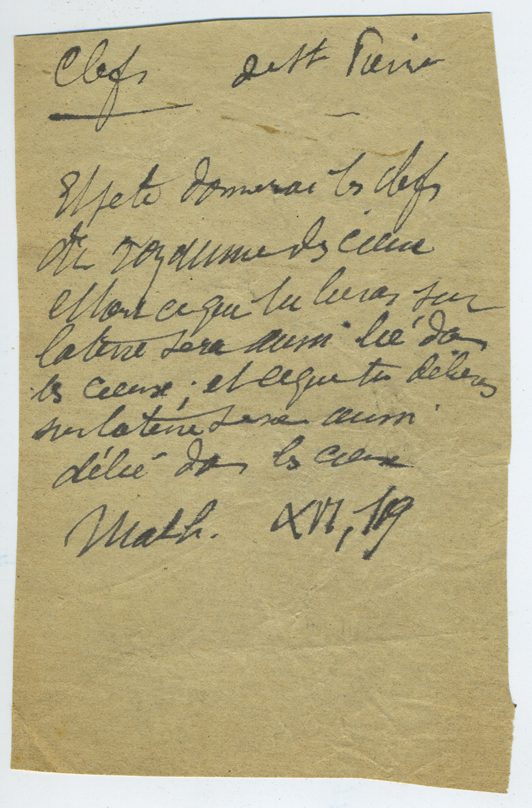 Clefs de St Pierre
Et je te donnerai les clefs
du royaume des cieux
et tout ce que tu lieras sur
la terre sera aussi lié dans
les cieux ; et ce que tu délieras
sur la terre sera aussi
délié dans les cieux
Math. XVI, 19